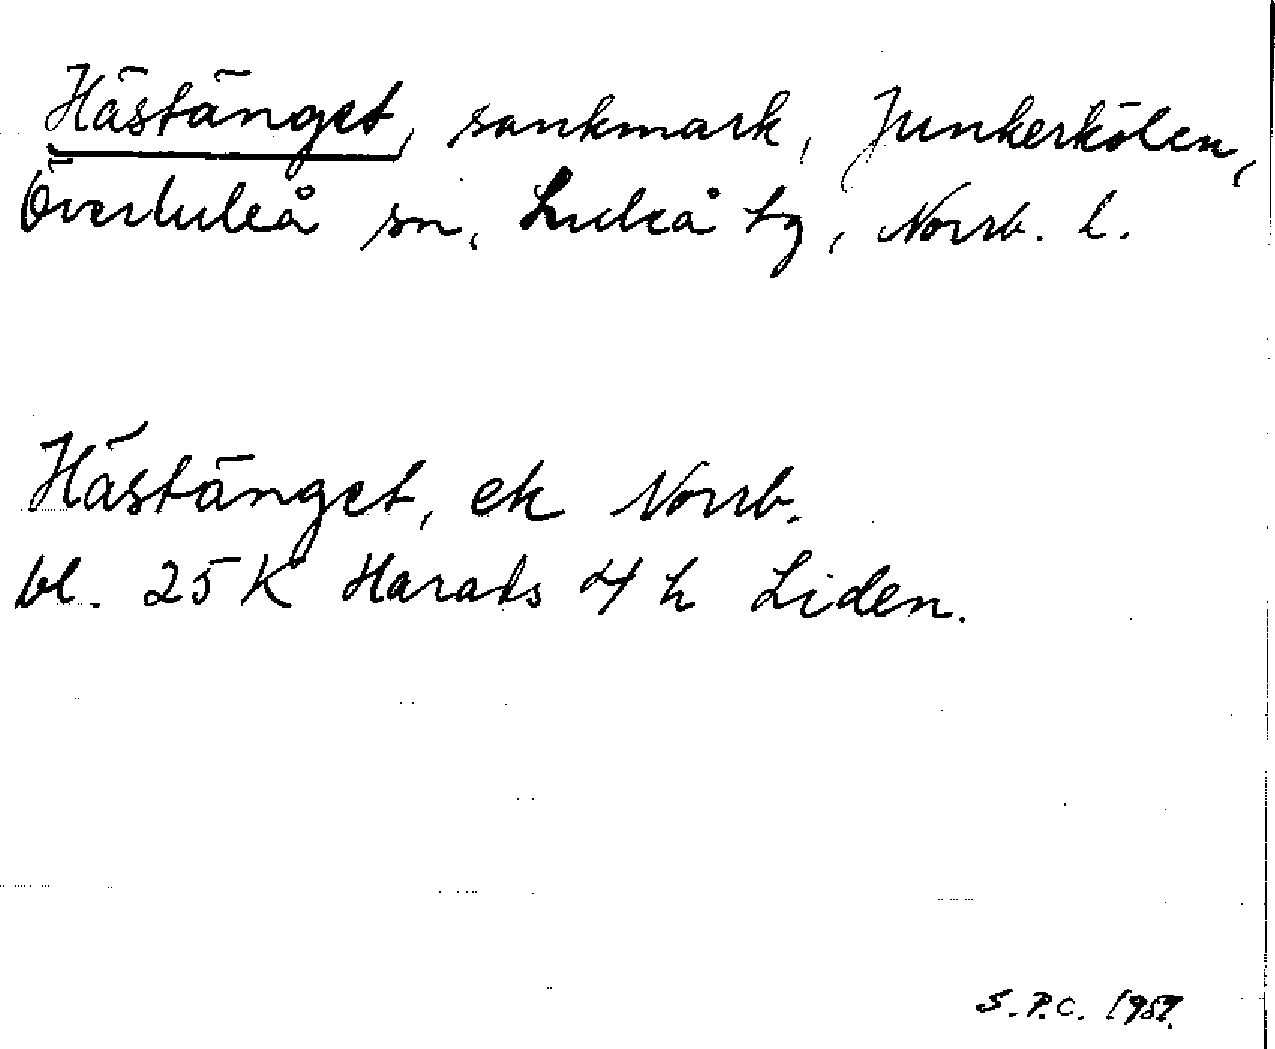 Hästänget, sankmark, Junkerkölen,
Överluleå sn, Luleå tg, Norrb. l.
Hästänget, ek Norrb.
bl. 25 K Harads 4 h Liden.
S.P.C. 1959.